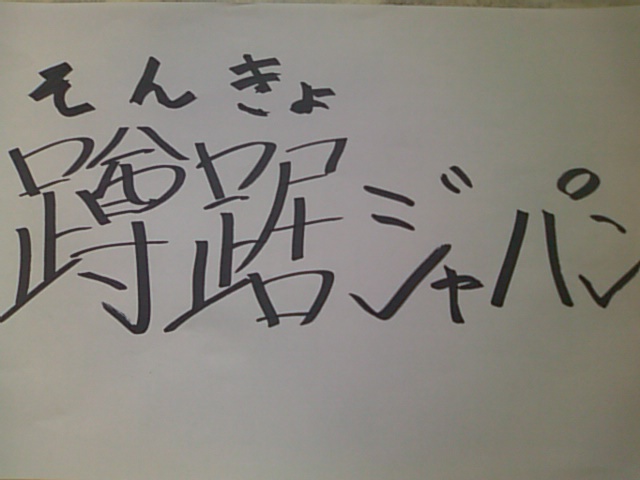 そんきょ
蹲踞ジャパン